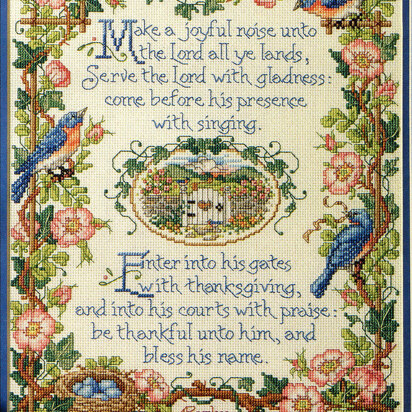 Make a joyful noise unto
the Lord all ye lands,
Serve the Lord with gladness:
come before his presence
with singing.
Enter into his gates
with thanksgiving,
and into his courts with praise:
be thankful unto him, and
bless his name.